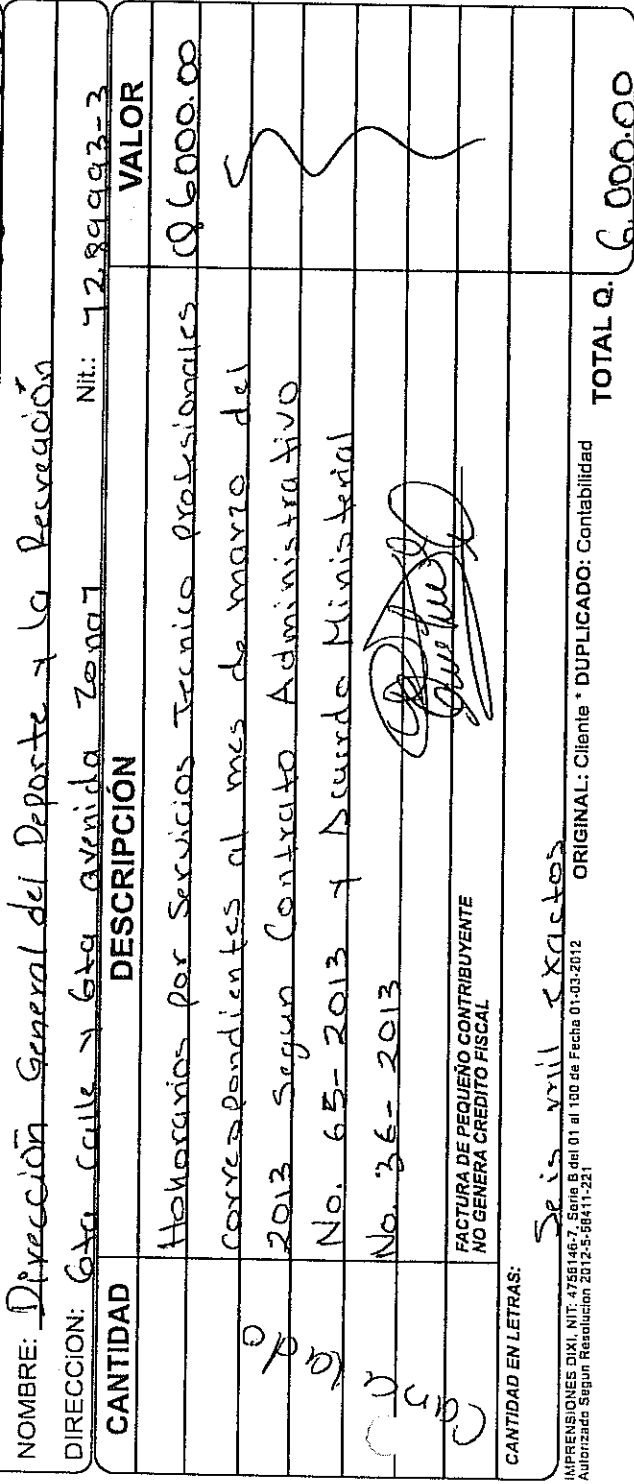 NOMBRE: Dirección General del Deporte y la Recreación
DIRECCIÓN: 6ta Calle y 6ta avenida Zona 1 Nit.: 4289993-3
CANTIDAD DESCRIPCIÓN VALOR
Honorarios por Servicios Tecnico profesionales Q6000.00
correspondientes al mes de marzo del
2013 Segun Contrato Administrativo
No. 65-2013 y Acuerdo Ministerial
No. 36-2013
Cancelado
FACTURA DE PEQUEÑO CONTRIBUYENTE
NO GENERA CREDITO FISCAL
CANTIDAD EN LETRAS: Seis mil exactos
IMPRENSIONES DIXI, NIT: 4756146-7, Serie B del 01 al 100 de Fecha 01-03-2012
Autorizado Segun Resolucion 2012-5-58411-221
ORIGINAL: Cliente * DUPLICADO: Contabilidad
TOTAL Q. 6,000.00